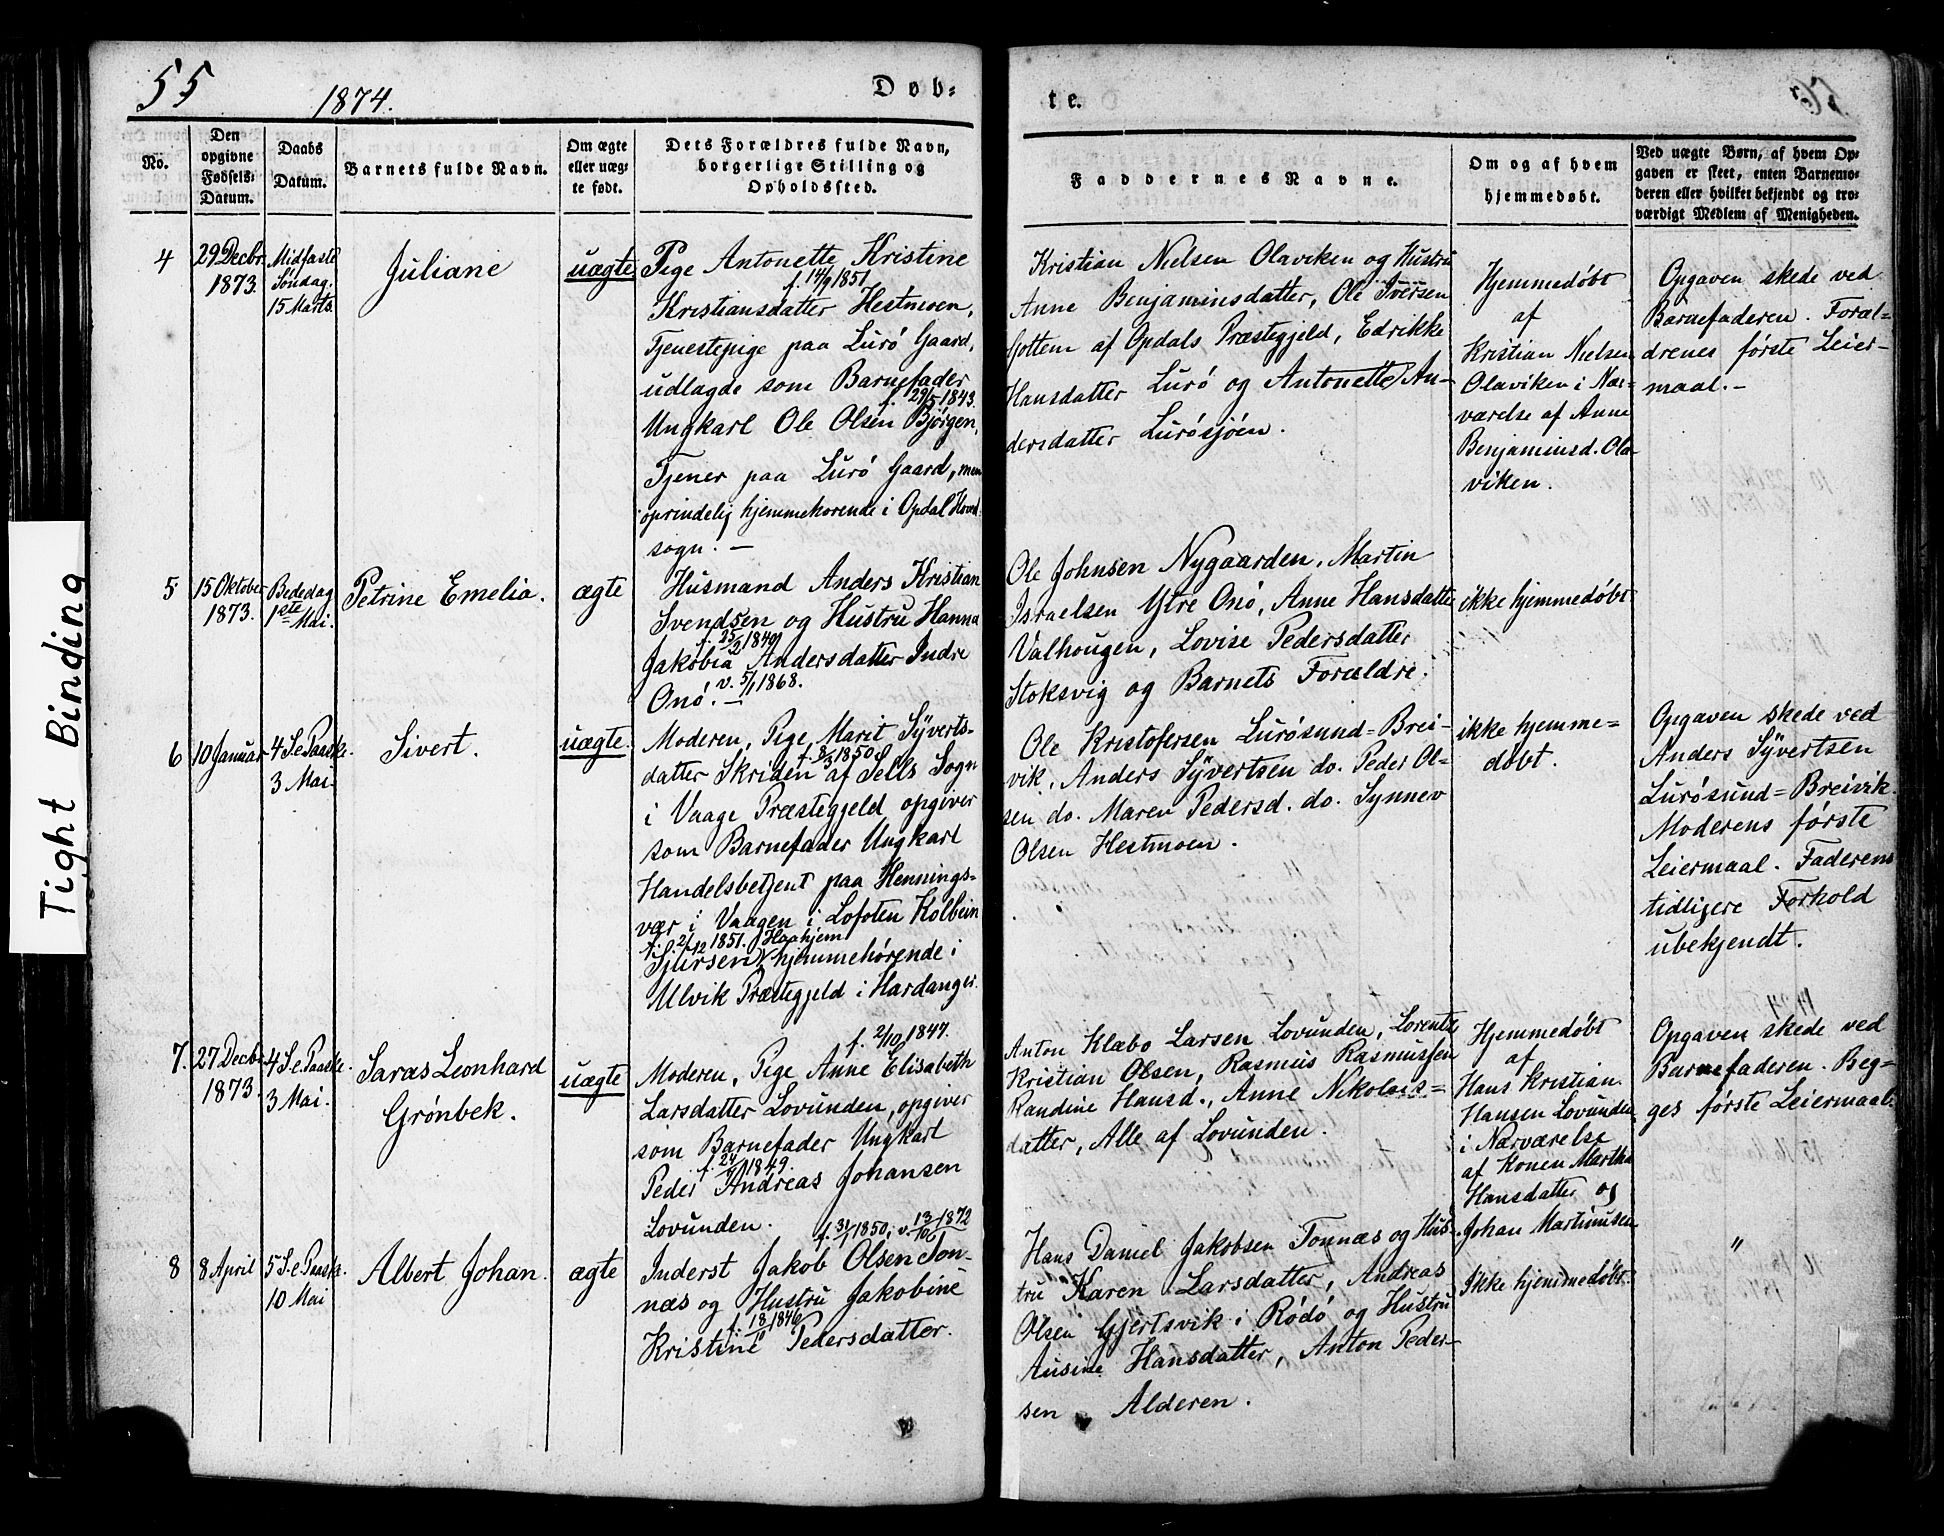 55
1874.
Døb-
te.
No.
Den opgivne Fødsels-Datum.
Daabs Datum.
Barnets fulde Navn.
Om ægte eller uæg-te født.
Dets Forældres fulde Navn, borgerlige Stilling og Opholdssted.
Faddernes Navne.
Om og af hvem hjemmedøbt.
Ved uægte Børn, af hvem Op-
gaven er skeet, enten Barnemo-
deren eller hvilket bekjendt og tro-
værdigt Medlem af Menigheden.
4
29 Decbr.
1873.
Midfaste
Søndag.
15 Marts.
Juliane
uægte
Pige Antonette Kristine
f. 14/9 1851
Kristiansdatter Hestmoen,
Tjenestepige paa Lurö Gaard,
udlagde som Barnefader
f. 29/5 1843.
Ungkarl Ole Olsen Bjørgen,
Tjener paa Lurö Gaard, men
oprindelig hjemmehørende i Opdal Hoved-
sogn. —
Kristian Nielsen Olaviken og Hustru
Anne Benjaminsdatter, Ole Iversen
Gottem af Opdals Præstegjeld, Edrikke
Hansdatter Lurö og Antonette An-
dersdatter Lurösjöen.
Hjemmedøbt
af
Kristian Nielsen
Olaviken i Nær-
værelse af Anne
Benjaminsd. Ola-
viken.
Opgaven skede ved
Barnefaderen. Foræl-
drenes første Leier-
maal. -
5
15 Oktober
1873.
Bededag
1ste Mai.
Petrine Emelia.
ægte
Husmand Anders Kristian
Svendsen og Hustru Hanna
f. 25/2 1849
Jakobia Andersdatter Indre
v. 5/1 1868.
Onö. —
Ole Johnsen Nygaarden, Martin
Israelsen Ytre Onö, Anne Hansdatter
Valhougen, Lovise Pedersdatter
Stoksvig og Barnets Forældre.
ikke hjemmedøbt
6
10 Januar
4 S. e. Paaske.
3 Mai.
Sivert.
uægte.
Moderen, Pige Marit Syverts-
f. 8/3 1850
datter Skriden af Sells Sogn
i Vaage Præstegjeld opgiver
som Barnefader Ungkarl
Handelsbetjent paa Hennings-
vær i Vaagen i Lofoten Kolbein
f. 2/12 1851. Haahjem
Sjursen, hjemmehørende i
Ulvik Præstegjeld i Hardanger.
Ole Kristofersen Lurösund=Brei-
vik, Anders Syvertsen do. Peder Ol-
sen do. Maren Pedersd. do. Synnev
Olsen Hestmoen.
ikke hjemme=
døbt.
Opgaven skede ved
Anders Syvertsen
Lurösund=Breivik.
Moderens første
Leiermaal. Faderens
tidligere Forhold
ubekjendt.
7.
27 Decbr.
1873.
4 S. e. Paaske.
3 Mai.
Saras Leonhard
Grønbek.
uægte
f. 2/10 1847.
Moderen, Pige Anne Elisabeth
Larsdatter Lovunden, opgiver
som Barnefader Ungkarl
Peder Andreas Johansen
Lovunden.
Anton Klæbo Larsen Lovunden, Lorentz
Kristian Olsen, Rasmus Rasmussen
Randine Hansd., Anne Nikolais=
datter, Alle af Lovunden.
Hjemmedøbt
af
Hans Kristian
Hansen Lovunden
i Nærværelse
af Konen Martha
Hansdatter og
Johan Martinusen
Opgaven skede ved
Barnefaderen. Beg-
ges første Leiermaal.
8
8 April
5 S. e. Paaske.
10 Mai
Albert Johan.
ægte
f. 31/1 1850, v. 13/10 1872
Inderst Jakob Olsen Ton-
næs og Hustru Jakobine
f. 18/10 1846
Kristine Pedersdatter.
Hans Daniel Jakobsen Tonnæs og Hus-
tru Karen Larsdatter, Andreas
Olsen Gjertsvik i Rödö og Hustru
Ausine Hansdatter, Anton Peder-
sen Alderen.
Ikke hjemmedøbt.
"
Tight Binding